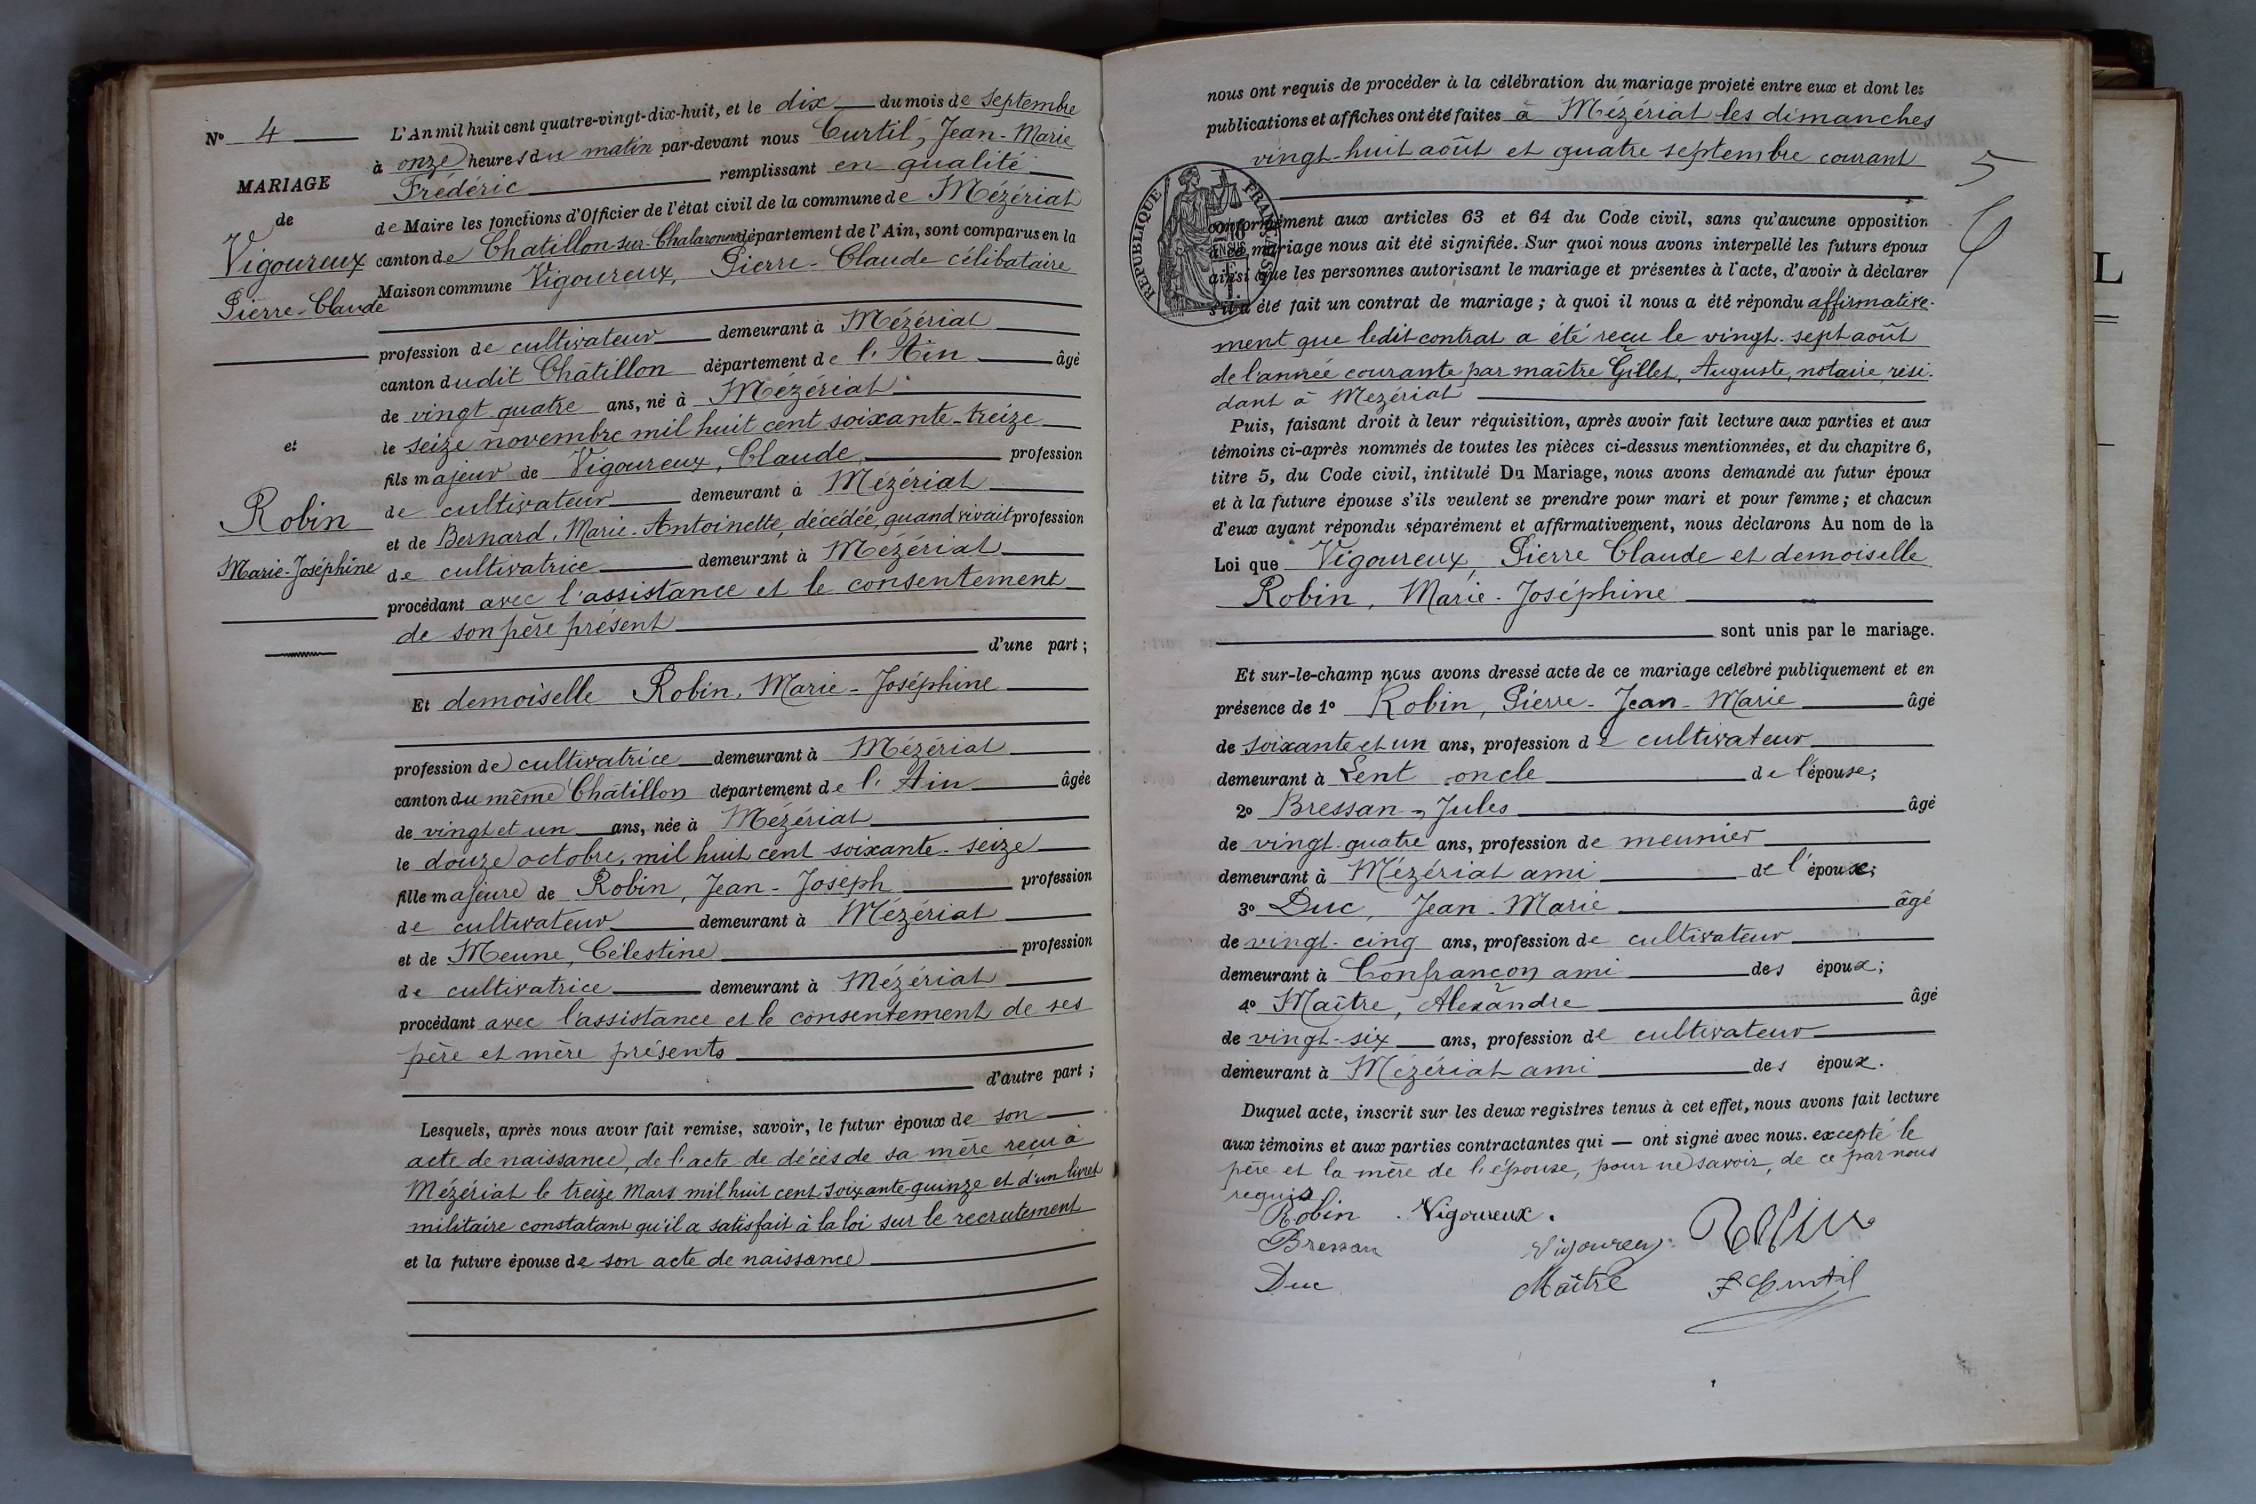 Nº 4
MARIAGE
de
Vigoureux
Pierre-Claude
et
Robin
Marie-Joséphine
L'An mil huit cent quatre-vingt-dix-huit, et le dix du mois de septembre
à onze heures du matin par-devant nous Curtil, Jean-Marie
Frédéric remplissant en qualité
de Maire les fonctions d'Officier de l'état civil de la commune de Mézériat
canton de Chatillon-sur-Chalaronne département de l'Ain, sont comparus en la
Maison commune Vigoureux, Pierre-Claude célibataire
profession de cultivateur demeurant à Mézériat
canton dudit Châtillon département de l'Ain âgé
de vingt quatre ans, né à Mézériat
le seize novembre mil huit cent soixante-treize
fils majeur de Vigoureux, Claude profession
de cultivateur demeurant à Mézériat
et de Bernard, Marie-Antoinette, décédée, quand vivait profession
de cultivatrice demeurant à Mézériat
procédant avec l'assistance et le consentement
de son père présent
d'une part;
Et demoiselle Robin, Marie-Joséphine
profession de cultivatrice demeurant à Mézériat
canton du même Châtillon département de l'Ain âgée
de vingt et un ans, née à Mézériat
le douze octobre, mil huit cent soixante-seize
fille majeure de Robin, Jean-Joseph profession
de cultivateur demeurant à Mézériat
et de Meune, Célestine profession
de cultivatrice demeurant à Mézériat
procédant avec l'assistance et le consentement de ses
père et mère présents
d'autre part;
Lesquels, après nous avoir fait remise, savoir, le futur époux de son
acte de naissance, de l'acte de décès de sa mère reçu à
Mézériat le treize Mars mil huit cent soixante-quinze et d'un livret
militaire constatant qu'il a satisfait à la loi sur le recrutement
et la future épouse de son acte de naissance
nous ont requis de procéder à la célébration du mariage projeté entre eux et dont les
publications et affiches ont été faites à Mézériat les dimanches
vingt-huit août et quatre septembre courant
RÉPUBLIQUE FRANÇAISE
conformément aux articles 63 et 64 du Code civil, sans qu'aucune opposition
à ce mariage nous ait été signifiée. Sur quoi nous avons interpellé les futurs époux
ainsi que les personnes autorisant le mariage et présentes à l'acte, d'avoir à déclarer
s'il a été fait un contrat de mariage; à quoi il nous a été répondu affirmative-
ment que ledit contrat a été reçu le vingt-sept août
de l'année courante par maître Gilles, Auguste, notaire, rési-
dant à Mézériat
Puis, faisant droit à leur réquisition, après avoir fait lecture aux parties et aux
témoins ci-après nommés de toutes les pièces ci-dessus mentionnées, et du chapitre 6,
titre 5, du Code civil, intitulé Du Mariage, nous avons demandé au futur époux
et à la future épouse s'ils veulent se prendre pour mari et pour femme; et chacun
d'eux ayant répondu séparément et affirmativement, nous déclarons Au nom de la
Loi que Vigoureux, Pierre Claude et demoiselle
Robin, Marie-Joséphine
sont unis par le mariage.
Et sur-le-champ nous avons dressé acte de ce mariage célébré publiquement et en
présence de 1º Robin, Pierre-Jean-Marie âgé
de soixante et un ans, profession de cultivateur
demeurant à Lent oncle de l'épouse;
2º Bressan, Jules âgé
de vingt-quatre ans, profession de meunier
demeurant à Mézériat ami de l'époux;
3º Duc, Jean-Marie âgé
de vingt-cinq ans, profession de cultivateur
demeurant à Confrançon ami des époux;
4º Maître, Alexandre âgé
de vingt-six ans, profession de cultivateur
demeurant à Mézériat ami des époux.
Duquel acte, inscrit sur les deux registres tenus à cet effet, nous avons fait lecture
aux témoins et aux parties contractantes qui — ont signé avec nous. excepté le
père et la mère de l'épouse, pour ne savoir, de ce par nous
requis.
Robin Vigoureux. Robin
Bressan Vigoureux
Duc Maître F Curtil
5
L